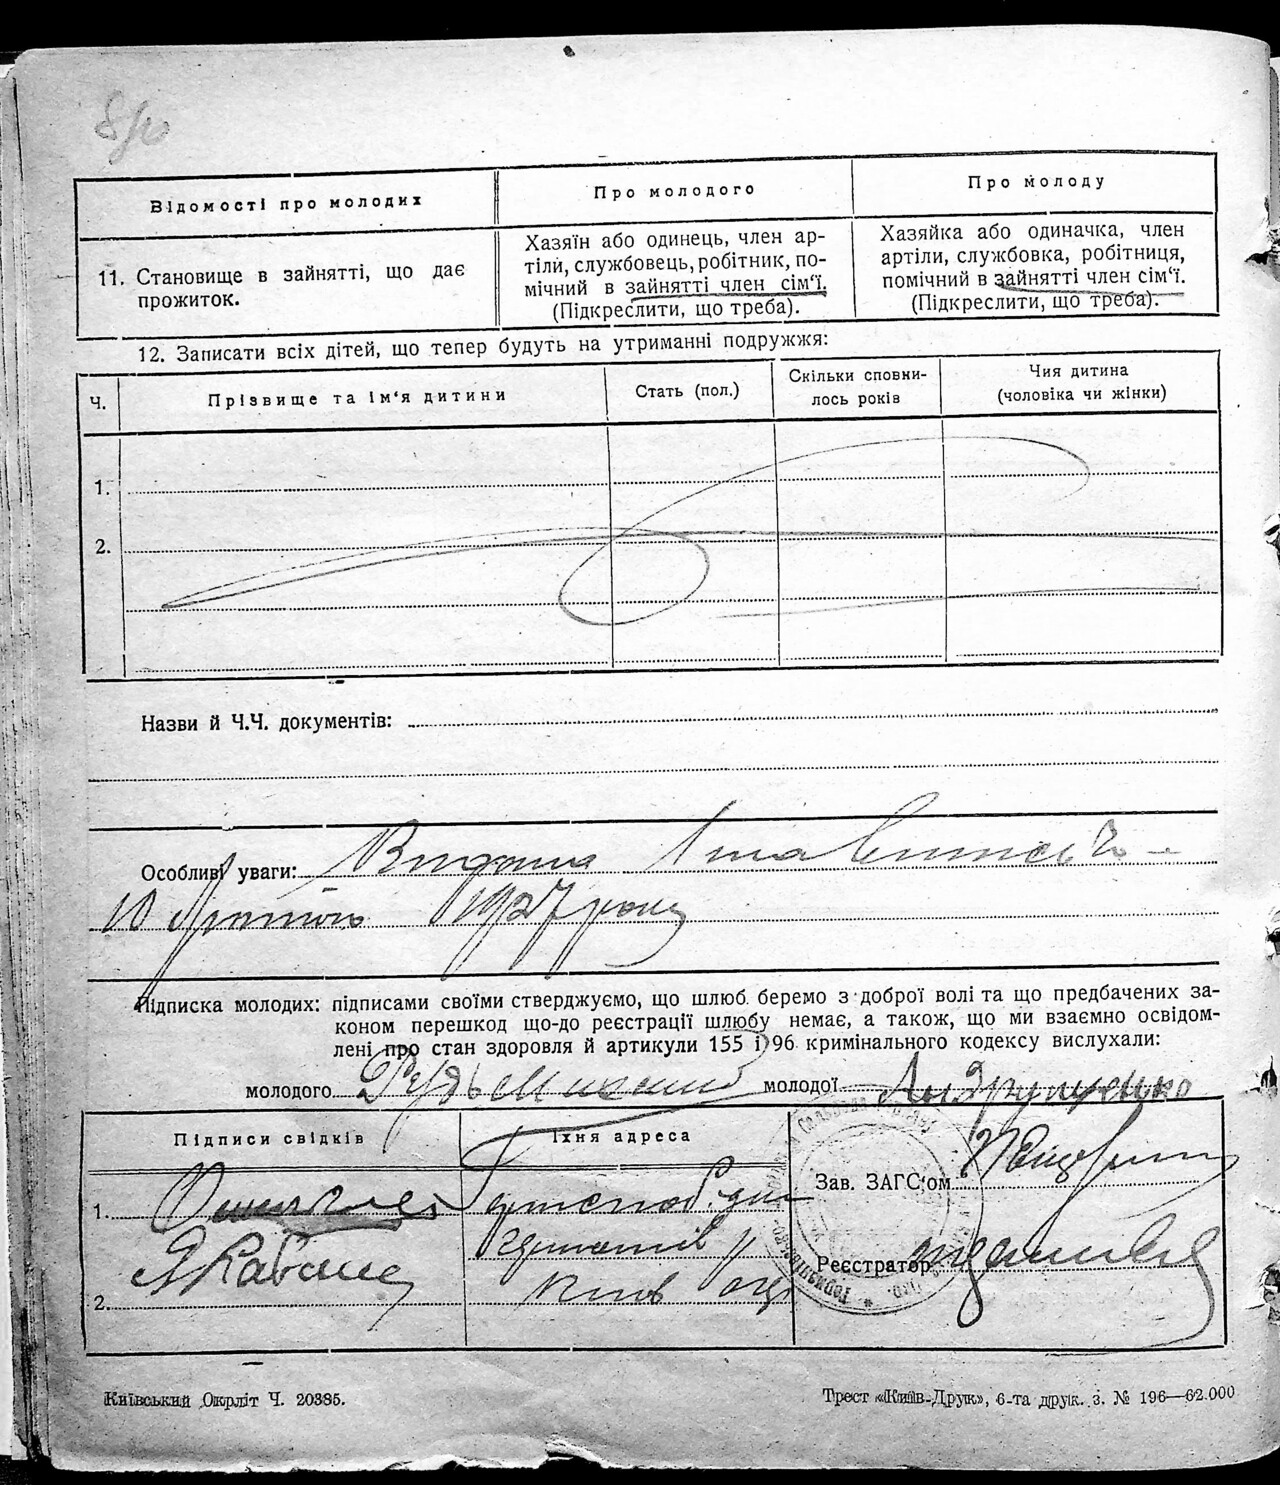 Відомості про молодих
Про молодого
Про молоду
11. Становище в зайнятті, що дає
прожиток.
Хазяїн або одинець, член ар-
тіли, службовець, робітник, по-
мічний в зайнятті член сім'ї.
(Підкреслити, що треба).
Хазяйка або одиначка, член
артіли, службовка, робітниця,
помічний в зайнятті член сім'ї.
(Підкреслити, що треба).
12. Записати всіх дітей, що тепер будуть на утриманні подружжя:
Ч.
Прізвище та ім'я дитини
Стать (пол.)
Скільки сповни-
лось років
Чия дитина
(чоловіка чи жінки)
1.
2.
Назви й Ч.Ч. документів:
Особливі уваги:
10 лютого 1927 року
Підписка молодих: підписами своїми стверджуємо, що шлюб беремо з доброї волі та що предбачених за-
коном перешкод що-до реєстрації шлюбу немає, а також, що ми взаємно освідом-
лені про стан здоровля й артикули 155 і 96 кримінального кодексу вислухали:
молодого
молодої
Підписи свідків
Їхня адреса
Зав. ЗАГС'ом
1.
Реєстратор
2.
Київський Окрліт Ч. 20385.
Трест «Київ-Друк», 6-та друк. з. № 196—62.000